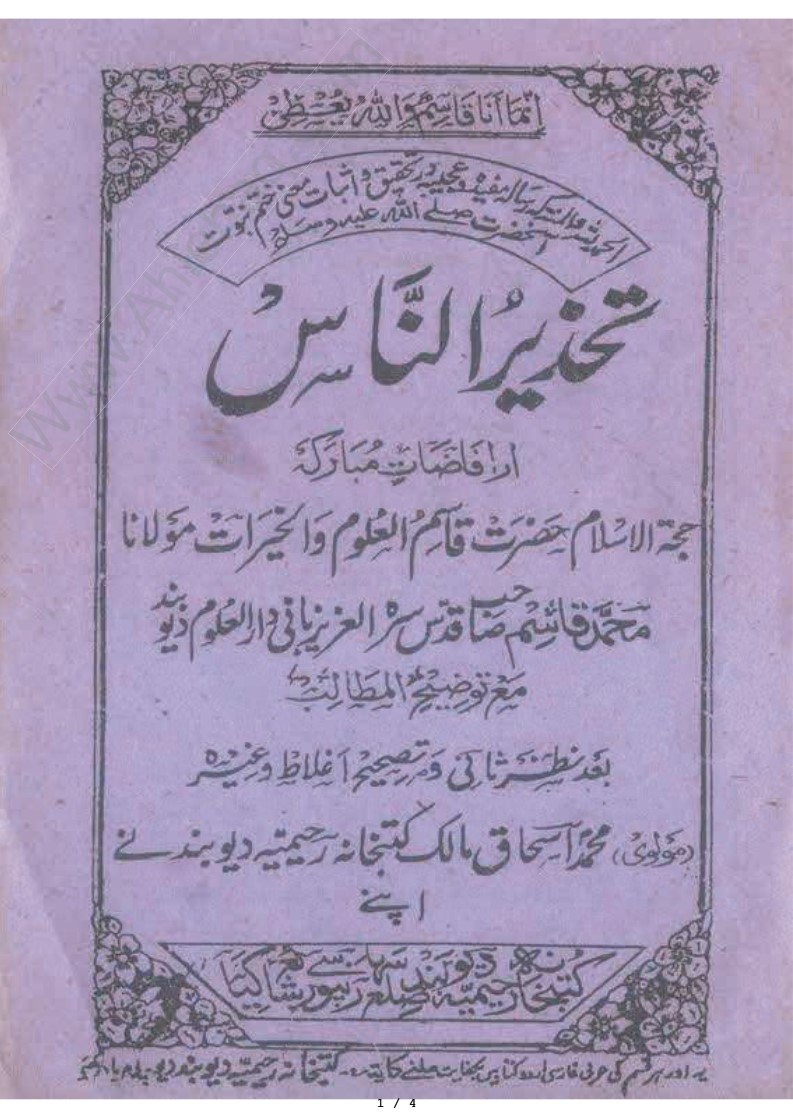 انما انا قاسم والله يعطى
الحمد لله والمنتہ کہ رسالہ مفیدہ و عجیبہ در تحقیق و اثبات معنی ختم نبوّت
آنحضرت صلے اللہ علیہ وسلم
تحذیرُ النَّاسِ
از افاضاتِ مُبارکہ
حجۃ الاسلام حضرت قاسم العلوم والخیرات مولانا
محمد قاسم صاحب قدس سرہ العزیز بانی دار العلوم دیوبند
مع توضیح المطالب
بعد نظر ثانی و تصحیح اغلاط وغیرہ
(مولوی) محمد اسحاق مالک کتبخانہ رحیمیہ دیوبند نے
اپنے
کتبخانہ رحیمیہ دیوبند ضلع سہارنپور سے شائع کیا
یہ اور ہر قسم کی عربی فارسی اردو کتابیں بکفایت ملنے کا پتہ:۔ کتبخانہ رحیمیہ دیوبند
1 / 4